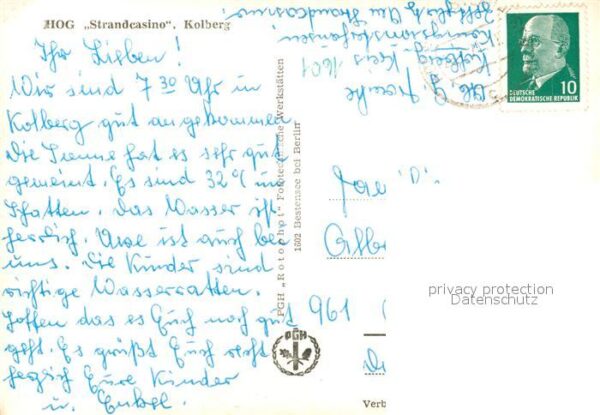 HOG „Strandcasino“, Kolberg
Ihr Lieben!
Wir sind 7 30 Uhr in
Kolberg gut angekommen.
Die Sonne hat es sehr gut
gemeint. Es sind 32°C im
Schatten. Das Wasser ist
herrlich. Uwe ist auch bei
uns. Die Kinder sind
richtige Wasserratten.
Hoffen das es Euch noch gut
geht. Es grüßt Euch recht
herzlich Eure Kinder
u. Enkel.
PGH „Rotophot“ Fototechnische Werkstätten
1602 Bestensee bei Berlin
PGH
1601
Kolberg Kreis
Königswusterhausen
DEUTSCHE
DEMOKRATISCHE REPUBLIK
10
961
privacy protection
Datenschutz
Verb